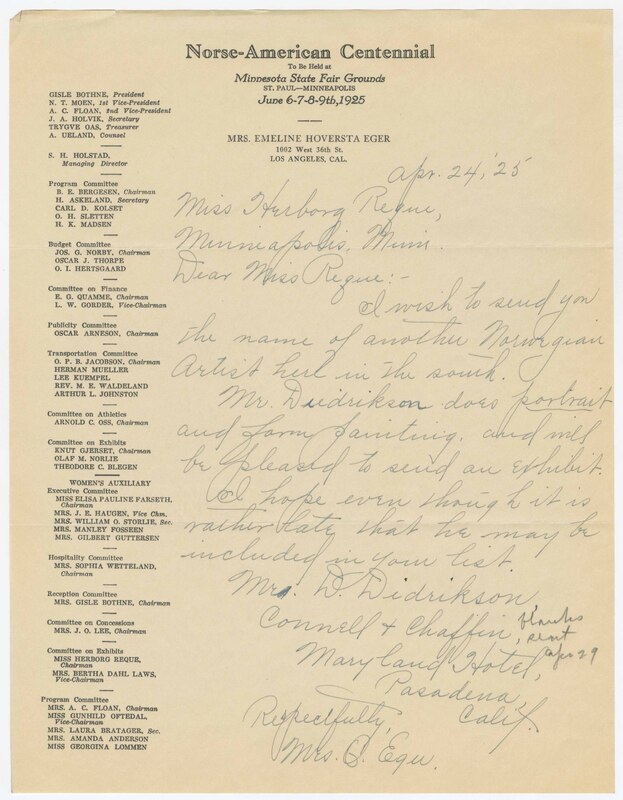 Norse-American Centennial
To Be Held at
Minnesota State Fair Grounds
ST. PAUL—MINNEAPOLIS
June 6-7-8-9th, 1925
MRS. EMELINE HOVERSTA EGER
1002 West 36th St.
LOS ANGELES, CAL.
GISLE BOTHNE, President
N. T. MOEN, 1st Vice-President
A. C. FLOAN, 2nd Vice-President
J. A. HOLVIK, Secretary
TRYGVE OAS, Treasurer
A. UELAND, Counsel
S. H. HOLSTAD,
Managing Director
Program Committee
B. E. BERGESEN, Chairman
H. ASKELAND, Secretary
CARL D. KOLSET
O. H. SLETTEN
H. K. MADSEN
Budget Committee
JOS. G. NORBY, Chairman
OSCAR J. THORPE
O. I. HERTSGAARD
Committee on Finance
E. G. QUAMME, Chairman
L. W. GORDER, Vice-Chairman
Publicity Committee
OSCAR ARNESON, Chairman
Transportation Committee
O. P. B. JACOBSON, Chairman
HERMAN MUELLER
LEE KUEMPEL
REV. M. E. WALDELAND
ARTHUR L. JOHNSTON
Committee on Athletics
ARNOLD C. OSS, Chairman
Committee on Exhibits
KNUT GJERSET, Chairman
OLAF M. NORLIE
THEODORE C. BLEGEN
WOMEN'S AUXILIARY
Executive Committee
MISS ELISA PAULINE FARSETH,
Chairman
MRS. J. E. HAUGEN, Vice Chm.
MRS. WILLIAM O. STORLIE, Sec.
MRS. MANLEY FOSSEEN
MRS. GILBERT GUTTERSEN
Hospitality Committee
MRS. SOPHIA WETTELAND,
Chairman
Reception Committee
MRS. GISLE BOTHNE, Chairman
Committee on Concessions
MRS. J. O. LEE, Chairman
Committee on Exhibits
MISS HERBORG REQUE,
Chairman
MRS. BERTHA DAHL LAWS,
Vice-Chairman
Program Committee
MRS. A. C. FLOAN, Chairman
MISS GUNHILD OFTEDAL,
Vice-Chairman
MRS. LAURA BRATAGER, Sec.
MRS. AMANDA ANDERSON
MISS GEORGINA LOMMEN
Apr. 24, '25
Miss Herborg Reque,
Minneapolis, Minn.
Dear Miss Reque:-
I wish to send you
the name of another Norwegian
Artist here in the south.
Mr. Didrikson does portrait
and painting, and will
be pleased to send an exhibit.
I hope even though it is
rather late that he may be
included in your list.
Mr. D. Didrikson,
Connell & Chaffin,
Maryland Hotel,
Pasadena,
Calif.
blanks
sent
Apr 29
Respectfully,
Mrs.